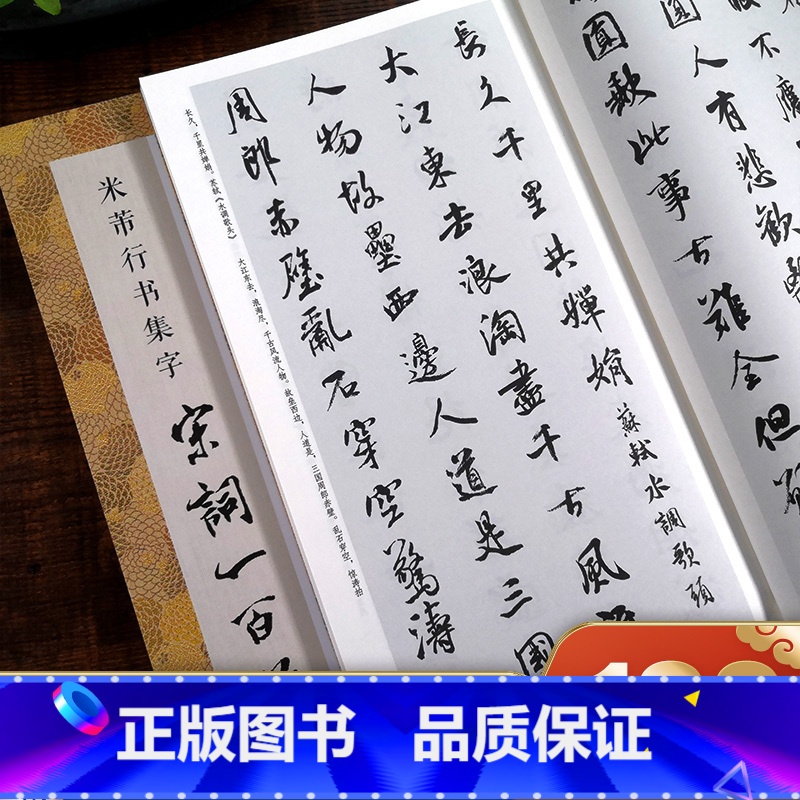 圆人有悲欢
圆歟此事古难全但
長久千里共嬋娟 蘇軾水調歌頭
大江東去浪淘盡千古風
人物故壘西邊人道是三國
周郎赤壁亂石穿空驚濤
长久，千里共婵娟。苏轼《水调歌头》 大江东去，浪淘尽，千古风流人物。故垒西边，人道是，三国周郎赤壁。乱石穿空，惊涛拍
米芾行书集字
宋詞一百
正版图书 品质保证